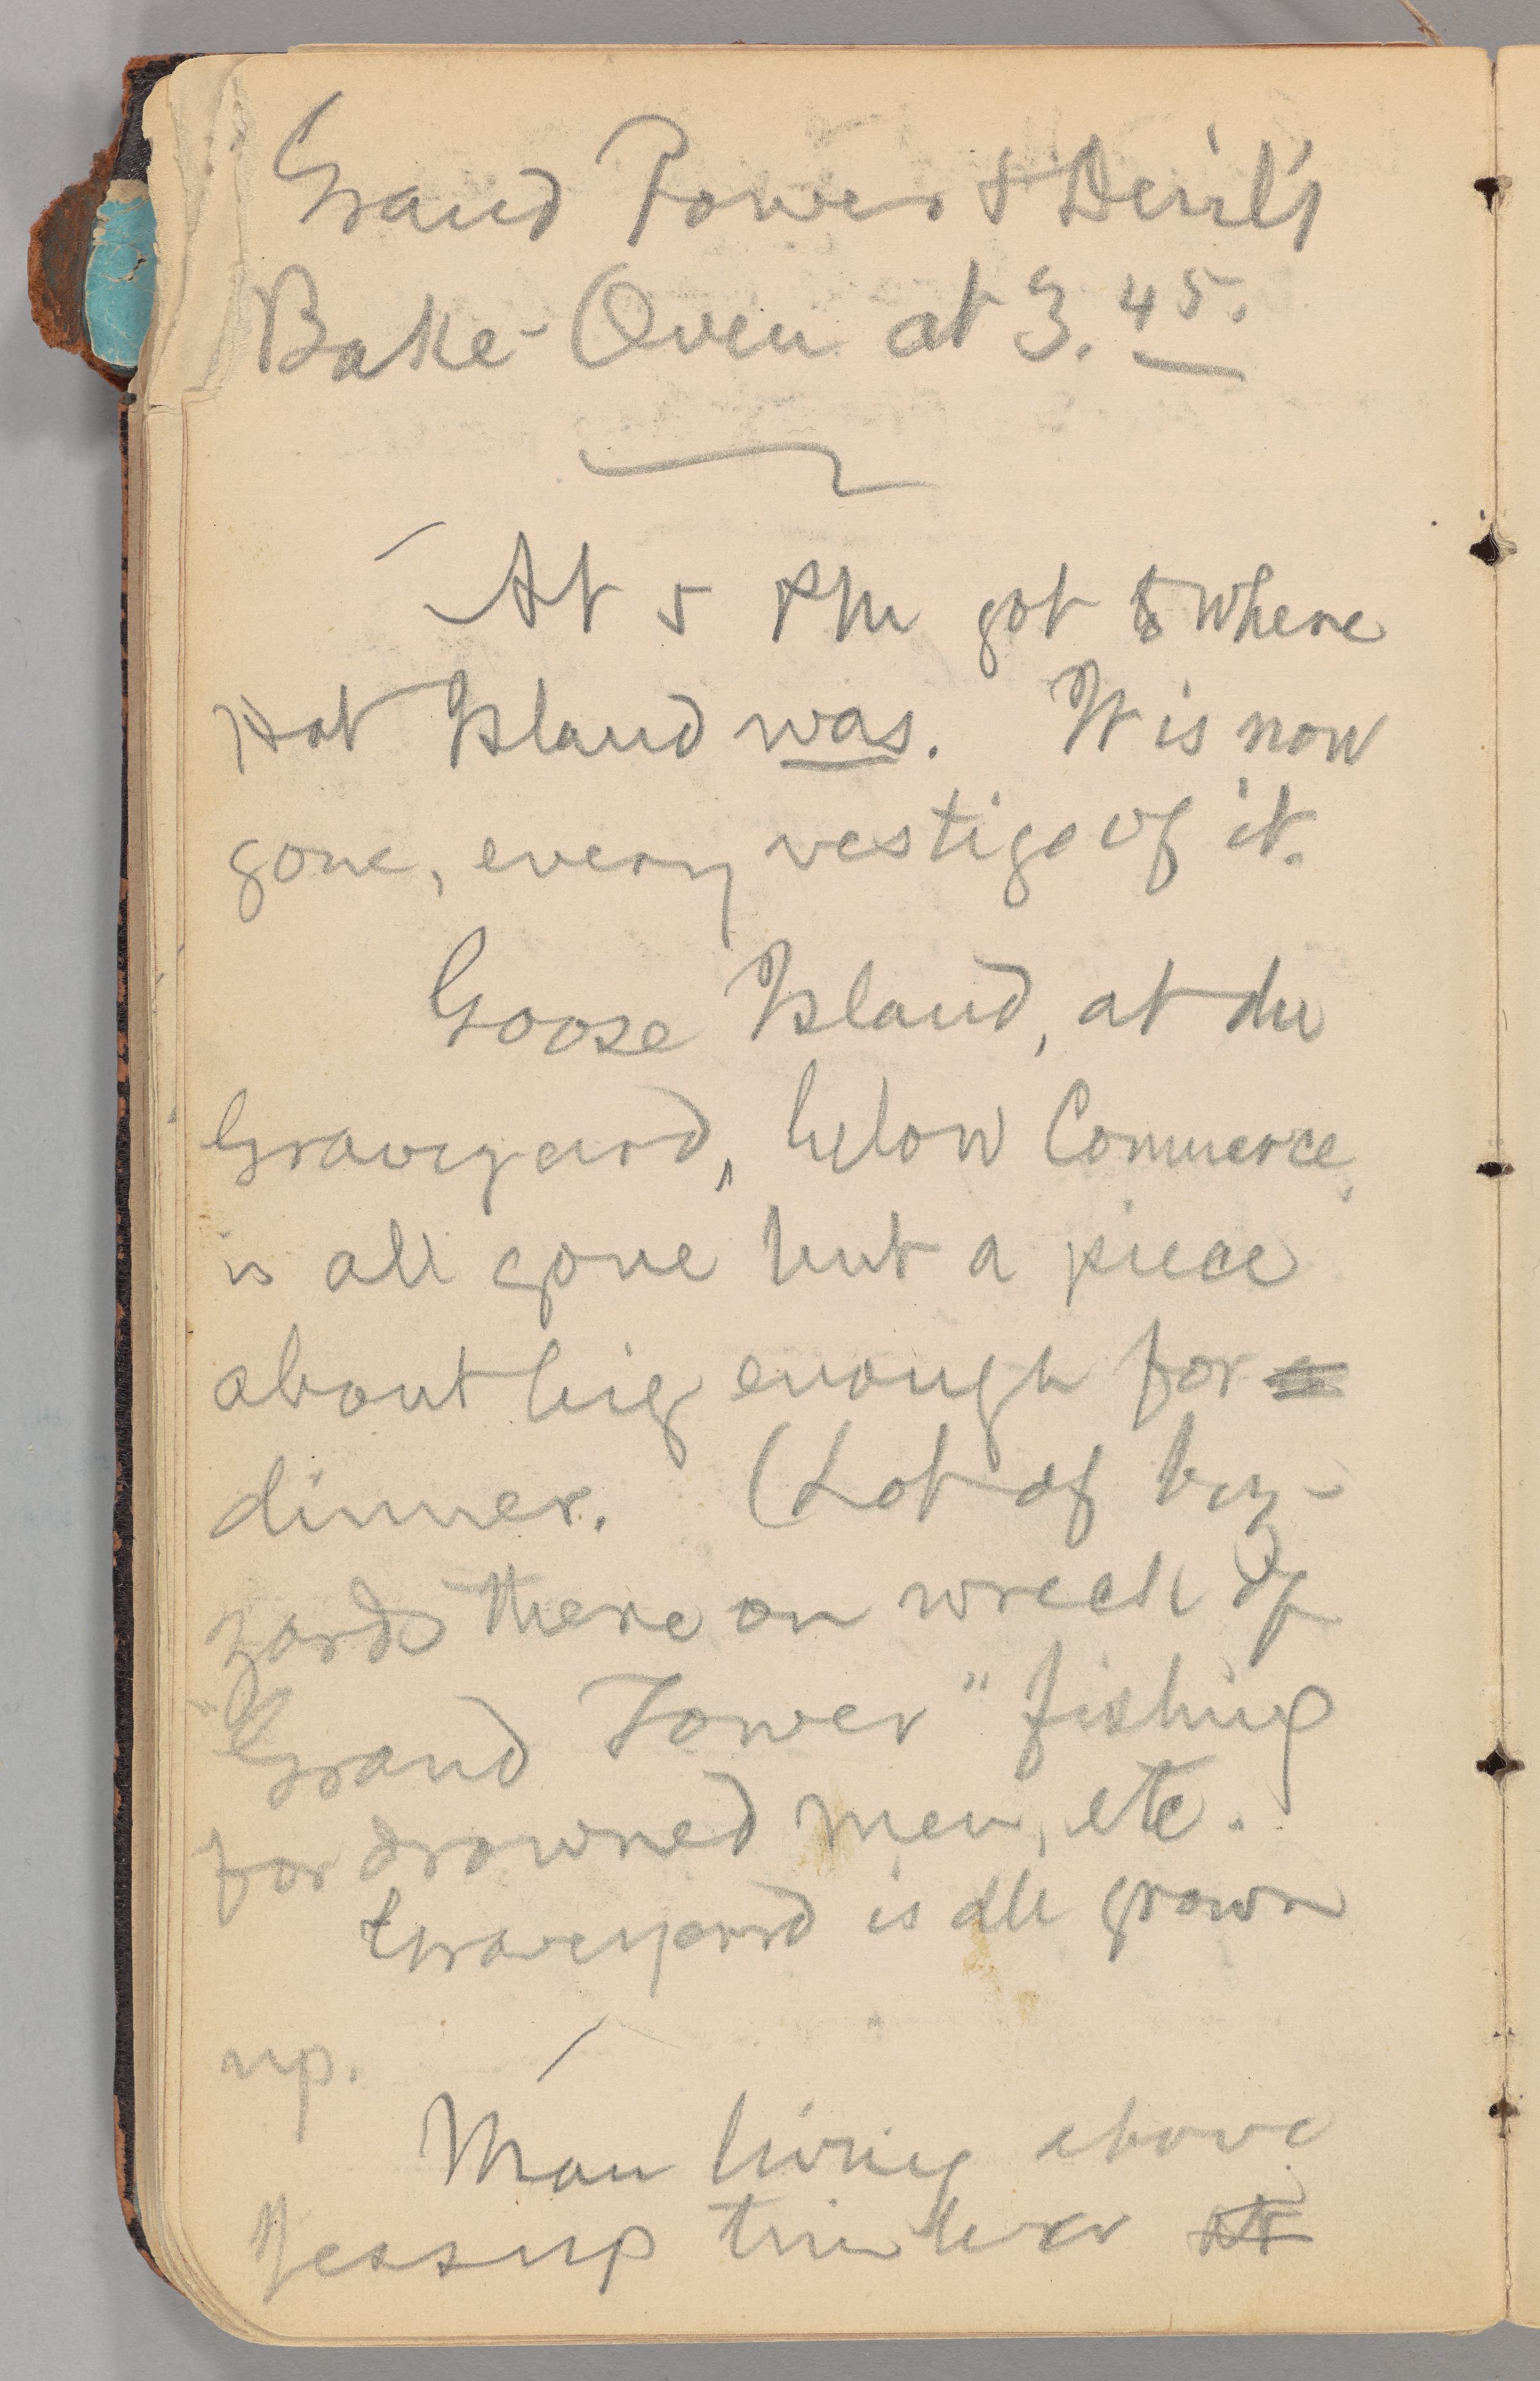 Grand Tower & Devil's
Bake-Oven at 3.45.
At 5 PM got to where
Hat Island was. It is now
gone, every vestige of it.
Goose Island, at the
Graveyard, below Commerce,
is all gone but a piece
about big enough for
dinner. (Lot of buz-
zards there on wreck of
"Grand Tower" fishing
for drowned men, etc.
Graveyard is all grown
up.
Man living above
Jessup timber